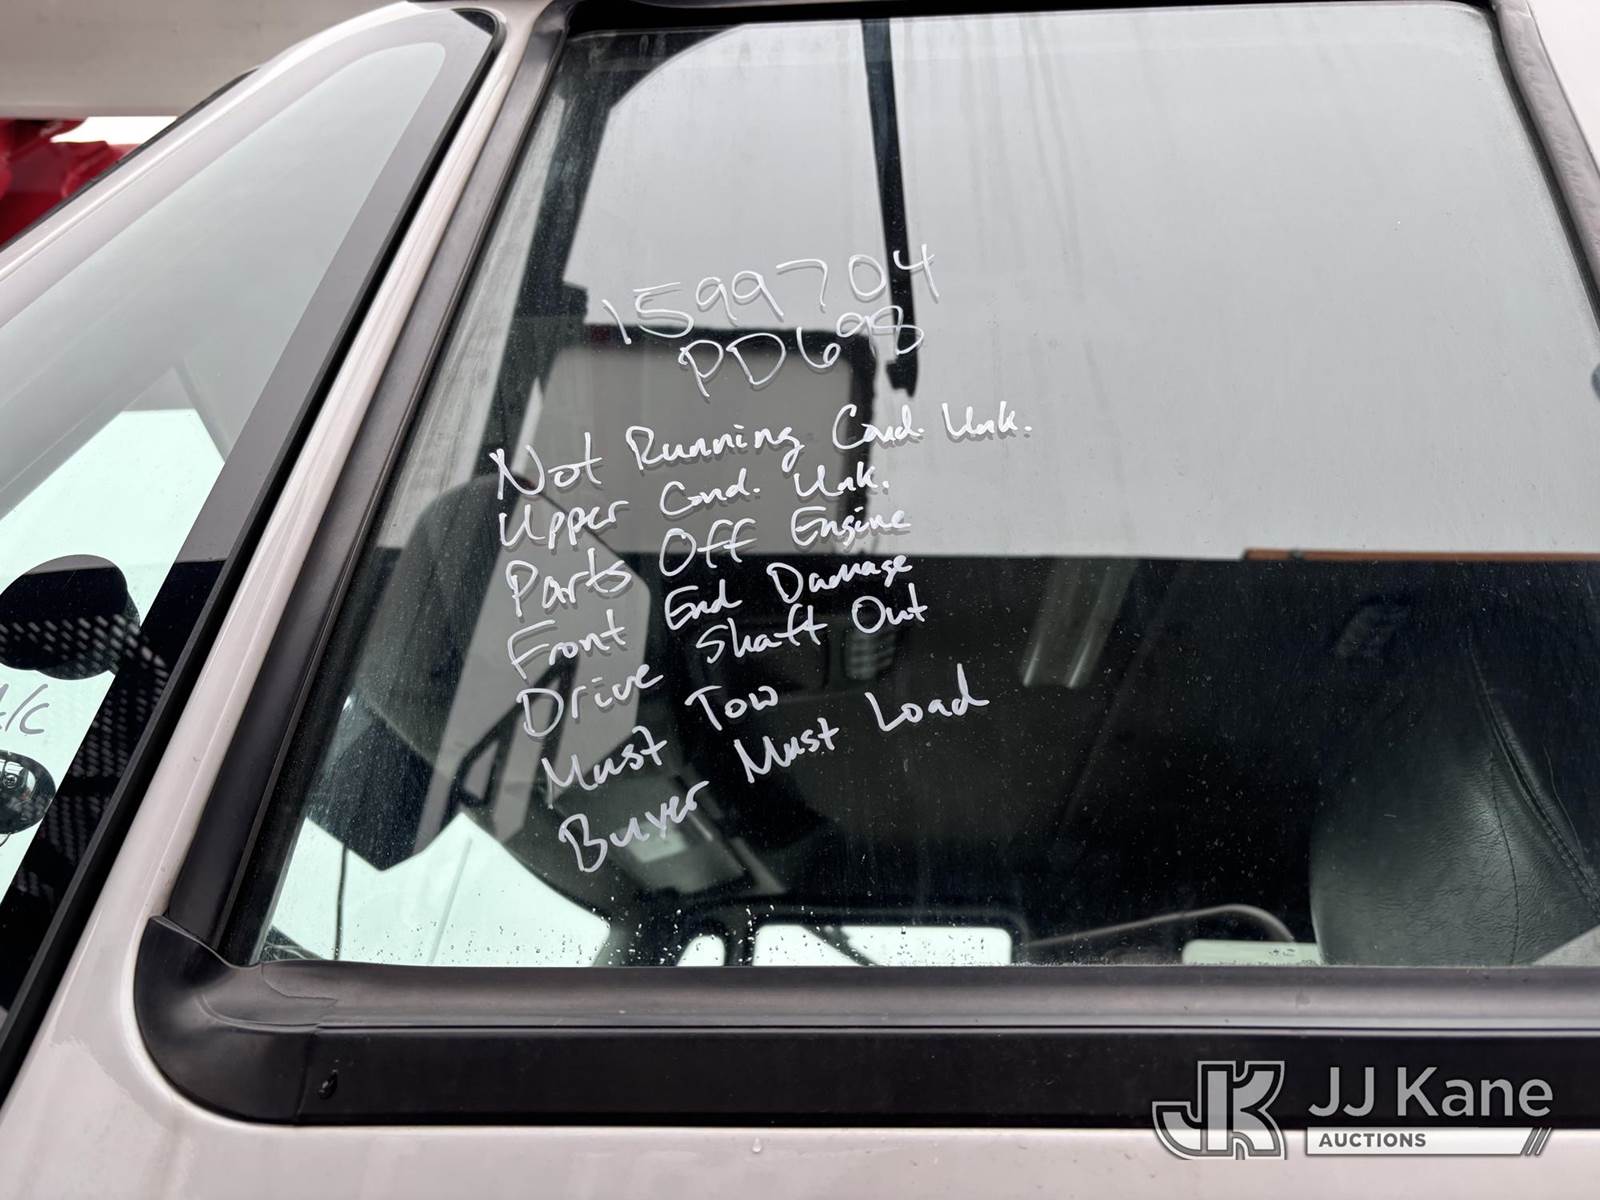 1599704
PD698
Not Running Cond. Unk.
Upper Cond. Unk.
Parts Off Engine
Front End Damage
Drive Shaft Out
Must Tow
Buyer Must Load
A/C
JJ Kane
AUCTIONS